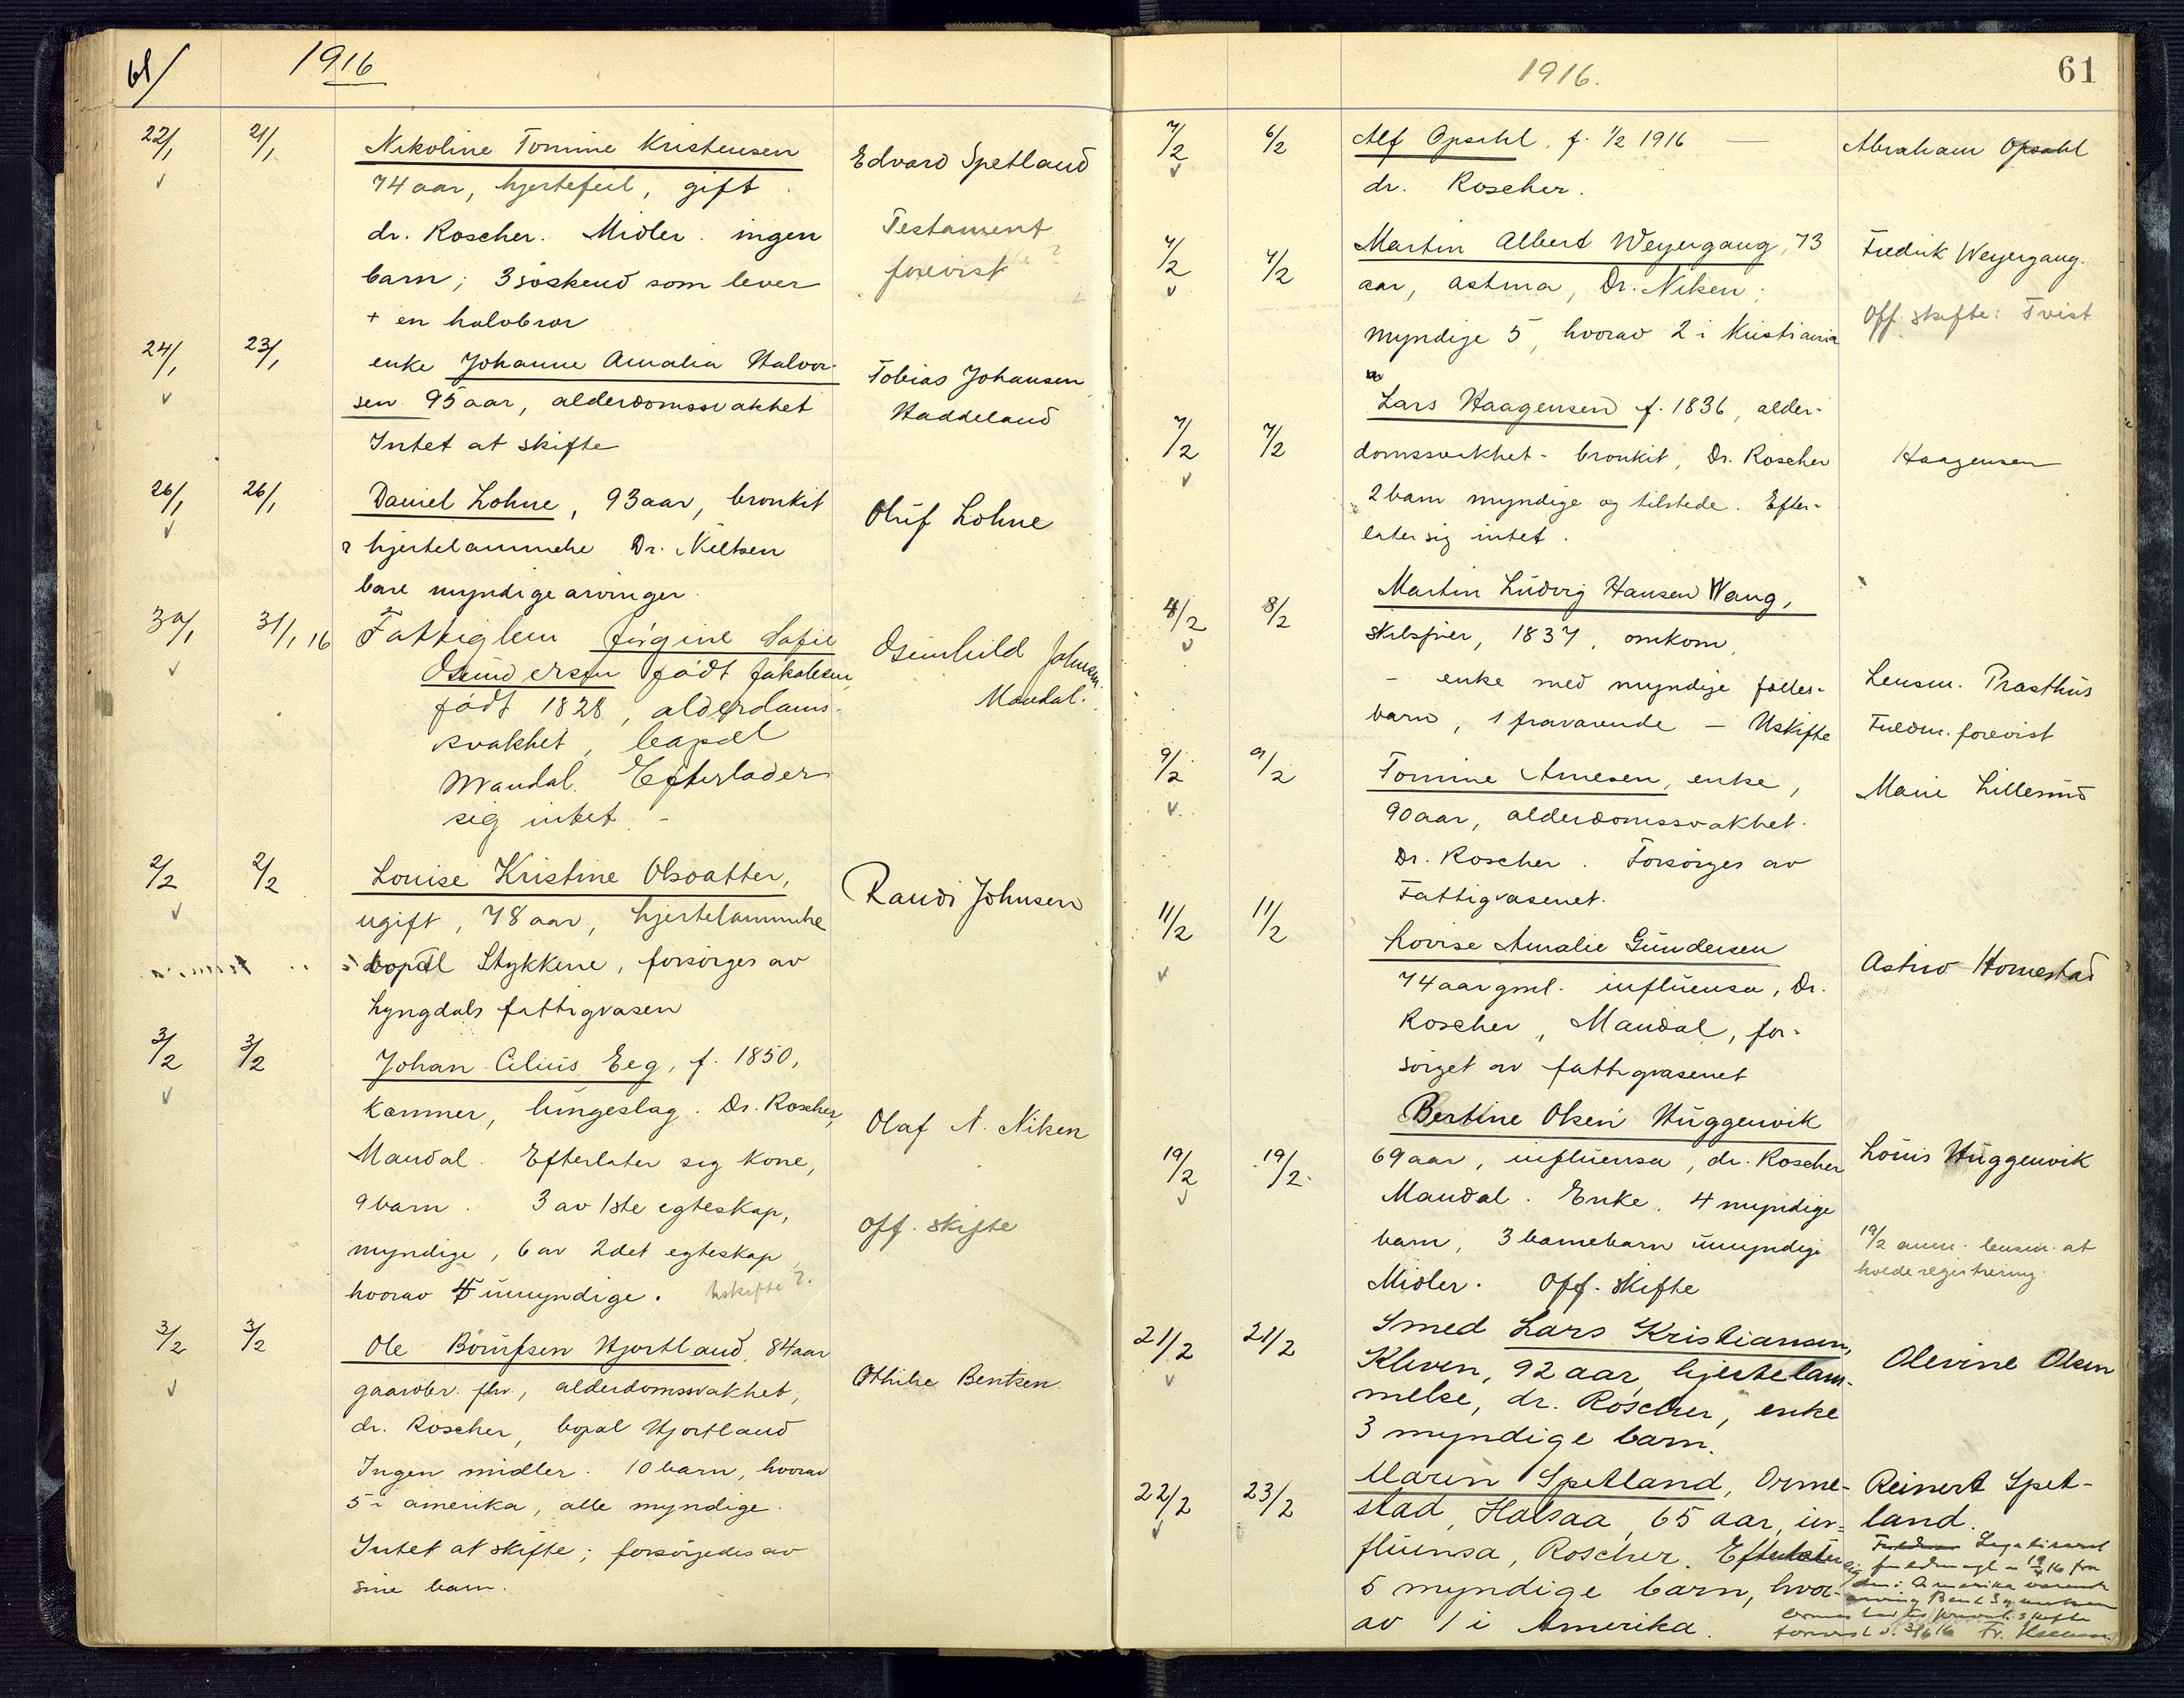 61/
1916
22/1 21/1 Nikoline Tomine Kristensen
74 aar, hjertefeil, gift.
dr. Roscher. Midler. ingen
barn; 3 söskend som lever
+ en halvbror
Edvard Spetland
Testament
forevist
24/1 23/1 enke Johanne Amalia Halvor-
sen 95 aar, alderdomssvakhet
Intet at skifte
Tobias Johansen
Haddeland
26/1 26/1 Daniel Lohne, 93 aar, bronkit
hjertelammelse Dr. Nielsen
bare myndige arvinger.
Oluf Lohne
30/1 31/1 16 Fattiglem Jörgine Sofie
Osmundsen född Jakobsen,
född 1828, alderdoms-
svakhet, bopæl
Mandal. Efterlader
sig intet -
Osmhild Johnsen
Mandal.
2/2 2/2 Louise Kristine Olsdatter,
ugift, 78 aar, hjertelammelse
bopæl Stykkene, forsörges av
Lyngdals fattigvæsen
Randi Johnsen
3/2 3/2 Johan Celius Eeg, f. 1850,
kæmner, lungeslag. Dr. Roscher,
Mandal. Efterlater sig kone,
9 barn. 3 av 1ste egteskap,
myndige, 6 av 2det egteskap
hvorav 4 umyndige. Uskifte?
Olaf N. Nilsen
Off. skifte
3/2 3/2 Ole Börufsen Hjortland, 84 aar
gaardbr. fhv., alderdomssvakhet,
dr. Roscher, bopæl Hjortland
Ingen midler. 10 barn, hvorav
5 i amerika, alle myndige.
Intet at skifte; forsörgedes av
sine barn.
Othilie Bentsen
1916.
61
7/2 6/2 Alf Opsahl, f. 1/2 1916 —
dr. Roscher.
Abraham Opsahl
7/2 4/2 Martin Albert Weyergang, 73
aar, astma, Dr. Nilsen;
myndige 5, hvorav 2 i Kristiania
Fredrik Weyergang.
Off. skifte: Tvist
7/2 7/2 Lars Haagensen f. 1836, alder-
domssvakhet - bronkit, Dr. Roscher
2 barn myndige og tilstede. Efter-
later sig intet.
Haagensen
8/2 8/2 Martin Ludvig Hansen Wang,
skibsfører, 1837, omkom,
- enke med myndige fælles-
barn, 1 fraværende - Uskifte
Lensm. Præsthus
Fuldm. forevist
9/2 9/2 Tomine Arnesen, enke,
90 aar, alderdomssvakhet.
Dr. Roscher. Forsörges av
Fattigvæsenet.
Marie Lillesund
11/2 11/2 Lovise Amalie Gundersen
74 aar gml. influensa, Dr.
Roscher, Mandal, for-
sörget av fattigvæsenet
Astrid Homestad
19/2 19/2 Bertine Olsen Huggenvik
69 aar, influensa, dr. Roscher
Mandal. Enke. 4 myndige
barn, 3 barnebarn umyndige
Midler. Off. skifte
Louis Huggenvik
19/2 anm. lensm. at
holde registrering.
21/2 21/2 Smed Lars Kristiansen,
Kleven, 92 aar, hjertelam-
melse, dr. Roscher, enke
3 myndige barn.
Olevine Olsen
22/2 23/2 Maren Spetland, Orme-
stad, Halsaa, 65 aar, in-
fluensa, Roscher. Efterlater sig
5 myndige barn, hvor-
av 1 i Amerika.
Reinert Spet-
land.
Legaliseret
fuldmagt
Amerika